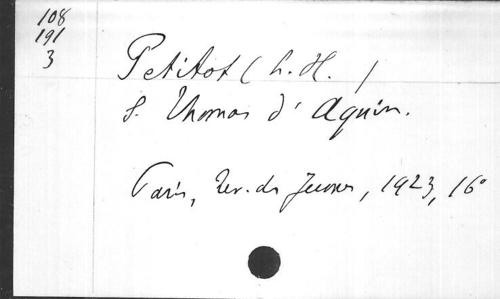 108
191
3
Petitot (L. H. )
S. Thomas d'Aquin.
Paris, Rev. des Jeunes, 1923, 16°